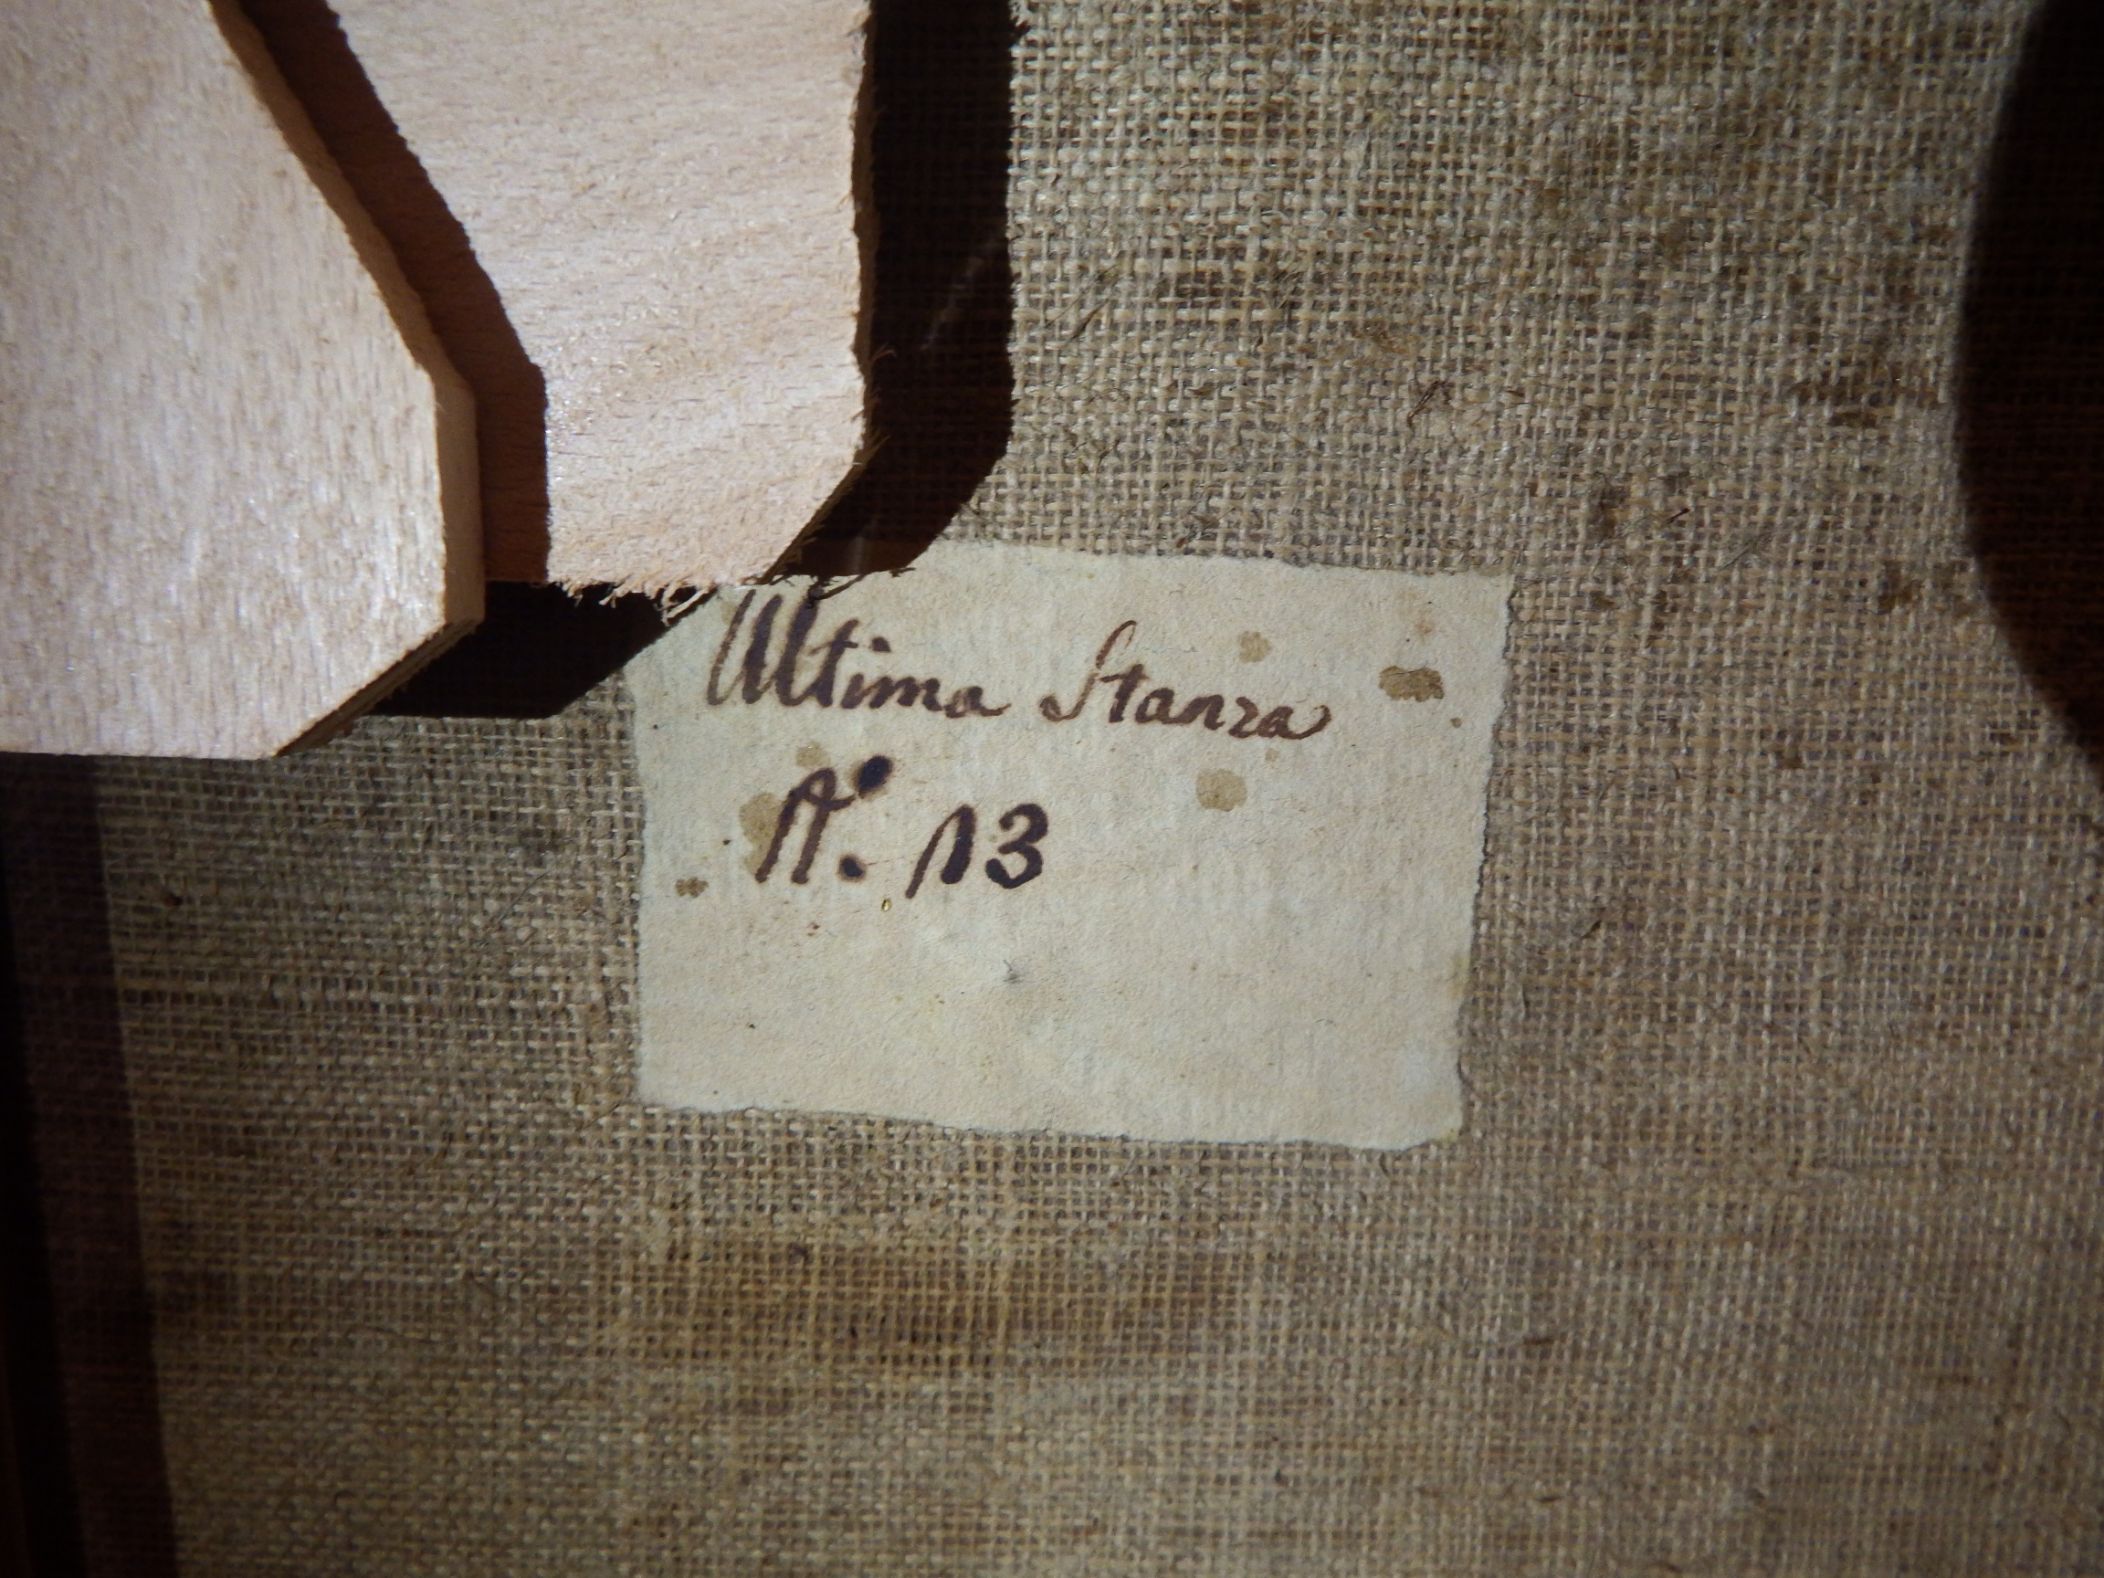 Ultima Stanza
N.º 13